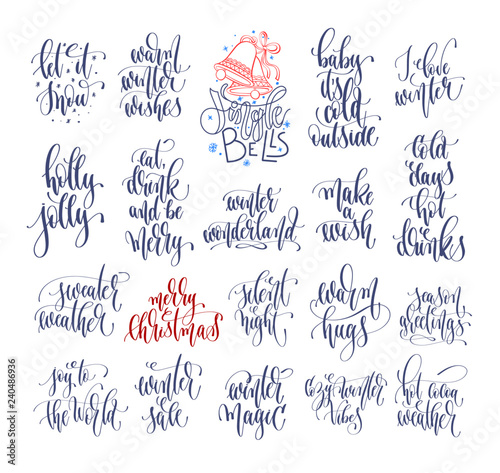 let it
snow
warm
winter
wishes
Jingle
Bells
baby
it's
cold
outside
I love
winter
holly
jolly
eat,
drink
and be
merry
winter
wonderland
make
a
wish
cold
days
hot
drinks
sweater
weather
merry
christmas
silent
night
warm
hugs
season
greetings
joy to
the world
winter
sale
winter
magic
cozy winter
vibes
hot cocoa
weather
240486936